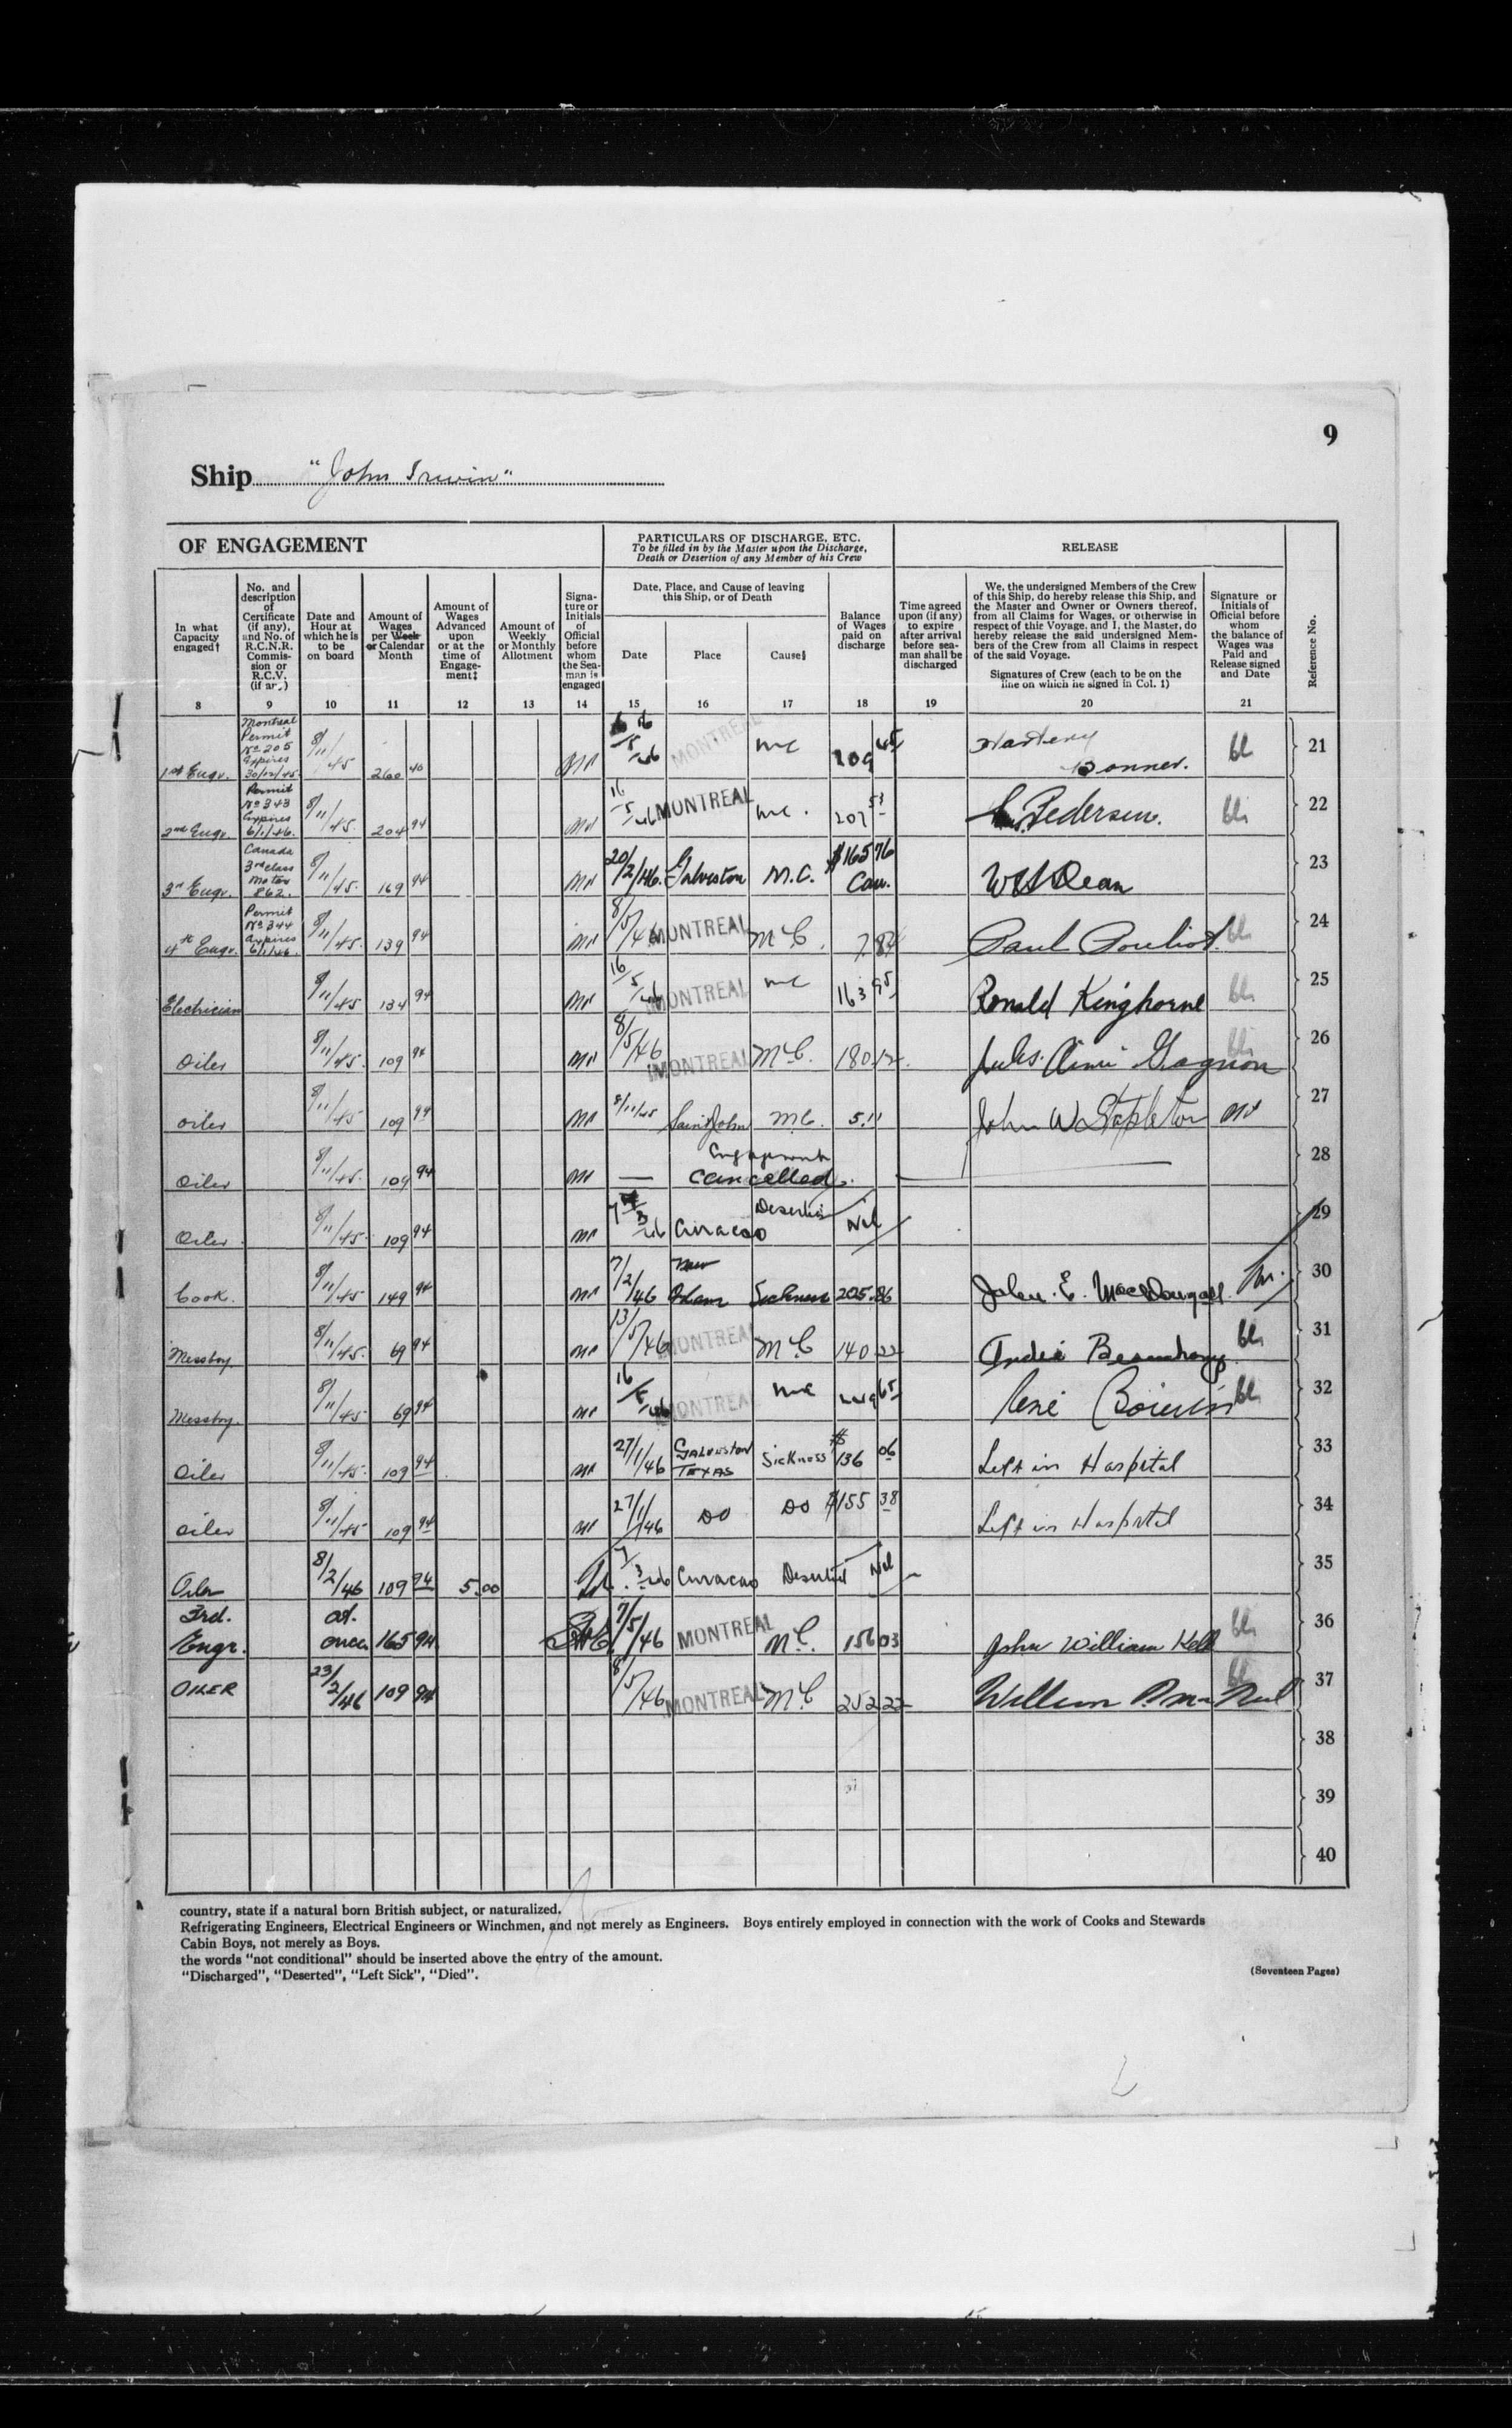 9
Ship "John Irwin"
OF ENGAGEMENT
PARTICULARS OF DISCHARGE, ETC.
To be filled in by the Master upon the Discharge,
Death or Desertion of any Member of his Crew
RELEASE
In what
Capacity
engaged†
No. and
description
of
Certificate
(if any),
and No. of
R.C.N.R.
Commis-
sion or
R.C.V.
(if any)
Date and
Hour at
which he is
to be
on board
Amount of
Wages
per Week
or Calendar
Month
Amount of
Wages
Advanced
upon
or at the
time of
Engage-
ment‡
Amount of
Weekly
or Monthly
Allotment
Signa-
ture or
Initials
of
Official
before
whom
the Sea-
man is
engaged
Date, Place, and Cause of leaving
this Ship, or of Death
Date
Place
Cause§
Balance
of Wages
paid on
discharge
Time agreed
upon (if any)
to expire
after arrival
before sea-
man shall be
discharged
We, the undersigned Members of the Crew
of this Ship, do hereby release this Ship, and
the Master and Owner or Owners thereof,
from all Claims for Wages, or otherwise in
respect of this Voyage, and I, the Master, do
hereby release the said undersigned Mem-
bers of the Crew from all Claims in respect
of the said Voyage.
Signatures of Crew (each to be on the
line on which he signed in Col. 1)
Signature or
Initials of
Official before
whom
the balance of
Wages was
Paid and
Release signed
and Date
Reference No.
8 9 10 11 12 13 14 15 16 17 18 19 20 21
1st Engr. Montreal Permit No 205 Expires 30/12/45 8/11/45 260 40 16/5/46 MONTREAL MC 209 45 Bonner. 21
2nd Engr. Permit No 343 Expires 6/1/46. 8/11/45. 204 94 16/5/46 MONTREAL MC. 207 53 Pedersen. 22
3rd Engr. Canada 3rd class Motor 862. 8/11/45. 169 94 20/2/46. Galveston M.C. $165 76 Can. W H Dean 23
4th Engr. Permit No 344 Expires 6/1/46. 8/11/45. 139 94 8/5/46 MONTREAL MC. 7 84 Paul Pouliot. 24
Electrician 8/11/45 134 94 16/5/46 MONTREAL MC 163 95 Ronald Kinghorne 25
Oiler 8/11/45. 109 94 8/5/46 MONTREAL MC. 180 12 Jules Aimé Gagnon 26
Oiler 8/11/45 109 94 8/11/45 Saint John M.C. 5.11 John W Stapleton 27
Oiler 8/11/45. 109 94 — Engagement cancelled. 28
Oiler 8/11/45. 109 94 7/3/46 Curacao Deserted Nil 29
Cook. 8/11/45 149 94 7/2/46 New Orleans Sickness 205.86 John. E. MacDougall. 30
Messboy 8/11/45. 69 94 13/5/46 MONTREAL MC 140 22 André 31
Messboy. 8/11/45 69 94 16/5/46 MONTREAL MC 65 René Boivin 32
Oiler 8/11/45. 109 94 27/1/46 GALVESTON TEXAS Sickness $136 06 Left in Hospital 33
Oiler 8/11/45 109 94 27/1/46 DO DO $155 38 Left in Hospital 34
Oiler 8/2/46 109 94 5.00 7/3/46 Curacao Deserted Nil 35
3rd. Engr. at once 165 94 7/5/46 MONTREAL MC. 156 03 John William Kell 36
OILER 23/2/46 109 94 8/5/46 MONTREAL MC 252 22 William 37
38
39
40
country, state if a natural born British subject, or naturalized.
Refrigerating Engineers, Electrical Engineers or Winchmen, and not merely as Engineers. Boys entirely employed in connection with the work of Cooks and Stewards
Cabin Boys, not merely as Boys.
the words "not conditional" should be inserted above the entry of the amount.
"Discharged", "Deserted", "Left Sick", "Died".
(Seventeen Pages)